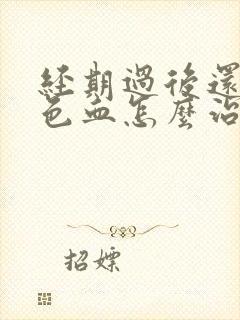 經期過後還
色血怎麼治
招嫖